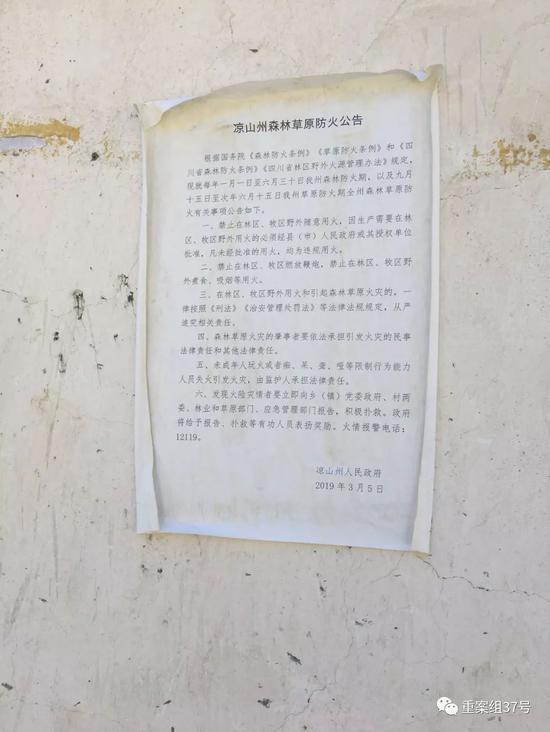 凉山州森林草原防火公告
根据国务院《森林防火条例》《草原防火条例》和《四
川省森林防火条例》《四川省林区野外火源管理办法》规定,
现就每年一月一日至六月三十日我州森林防火期，以及九月
十五日至次年六月十五日我州草原防火期全州森林草原防
火有关事项公告如下。
一、禁止在林区、牧区野外随意用火，因生产需要在林
区、牧区野外用火的必须经县（市）人民政府或其授权单位
批准，凡未经批准的用火，均为违规用火。
二、禁止在林区、牧区燃放鞭炮，禁止在林区、牧区野
外煮食、吸烟等用火。
三、在林区、牧区野外用火和引起森林草原火灾的，一
律按照《刑法》《治安管理处罚法》等法律法规规定，从严
追究相关责任。
四、森林草原火灾的肇事者要依法承担引发火灾的民事
法律责任和其他法律责任。
五、未成年人玩火或者痴、呆、聋、哑等限制行为能力
人员失火引发火灾，由监护人承担法律责任。
六、发现火险灾情者要立即向乡（镇）党委政府、村两
委、林业和草原部门、应急管理部门报告，积极扑救。政府
将给予报告、扑救等有功人员表扬奖励。火情报警电话：
12119。
凉山州人民政府
2019 年 3 月 5 日
重案组37号